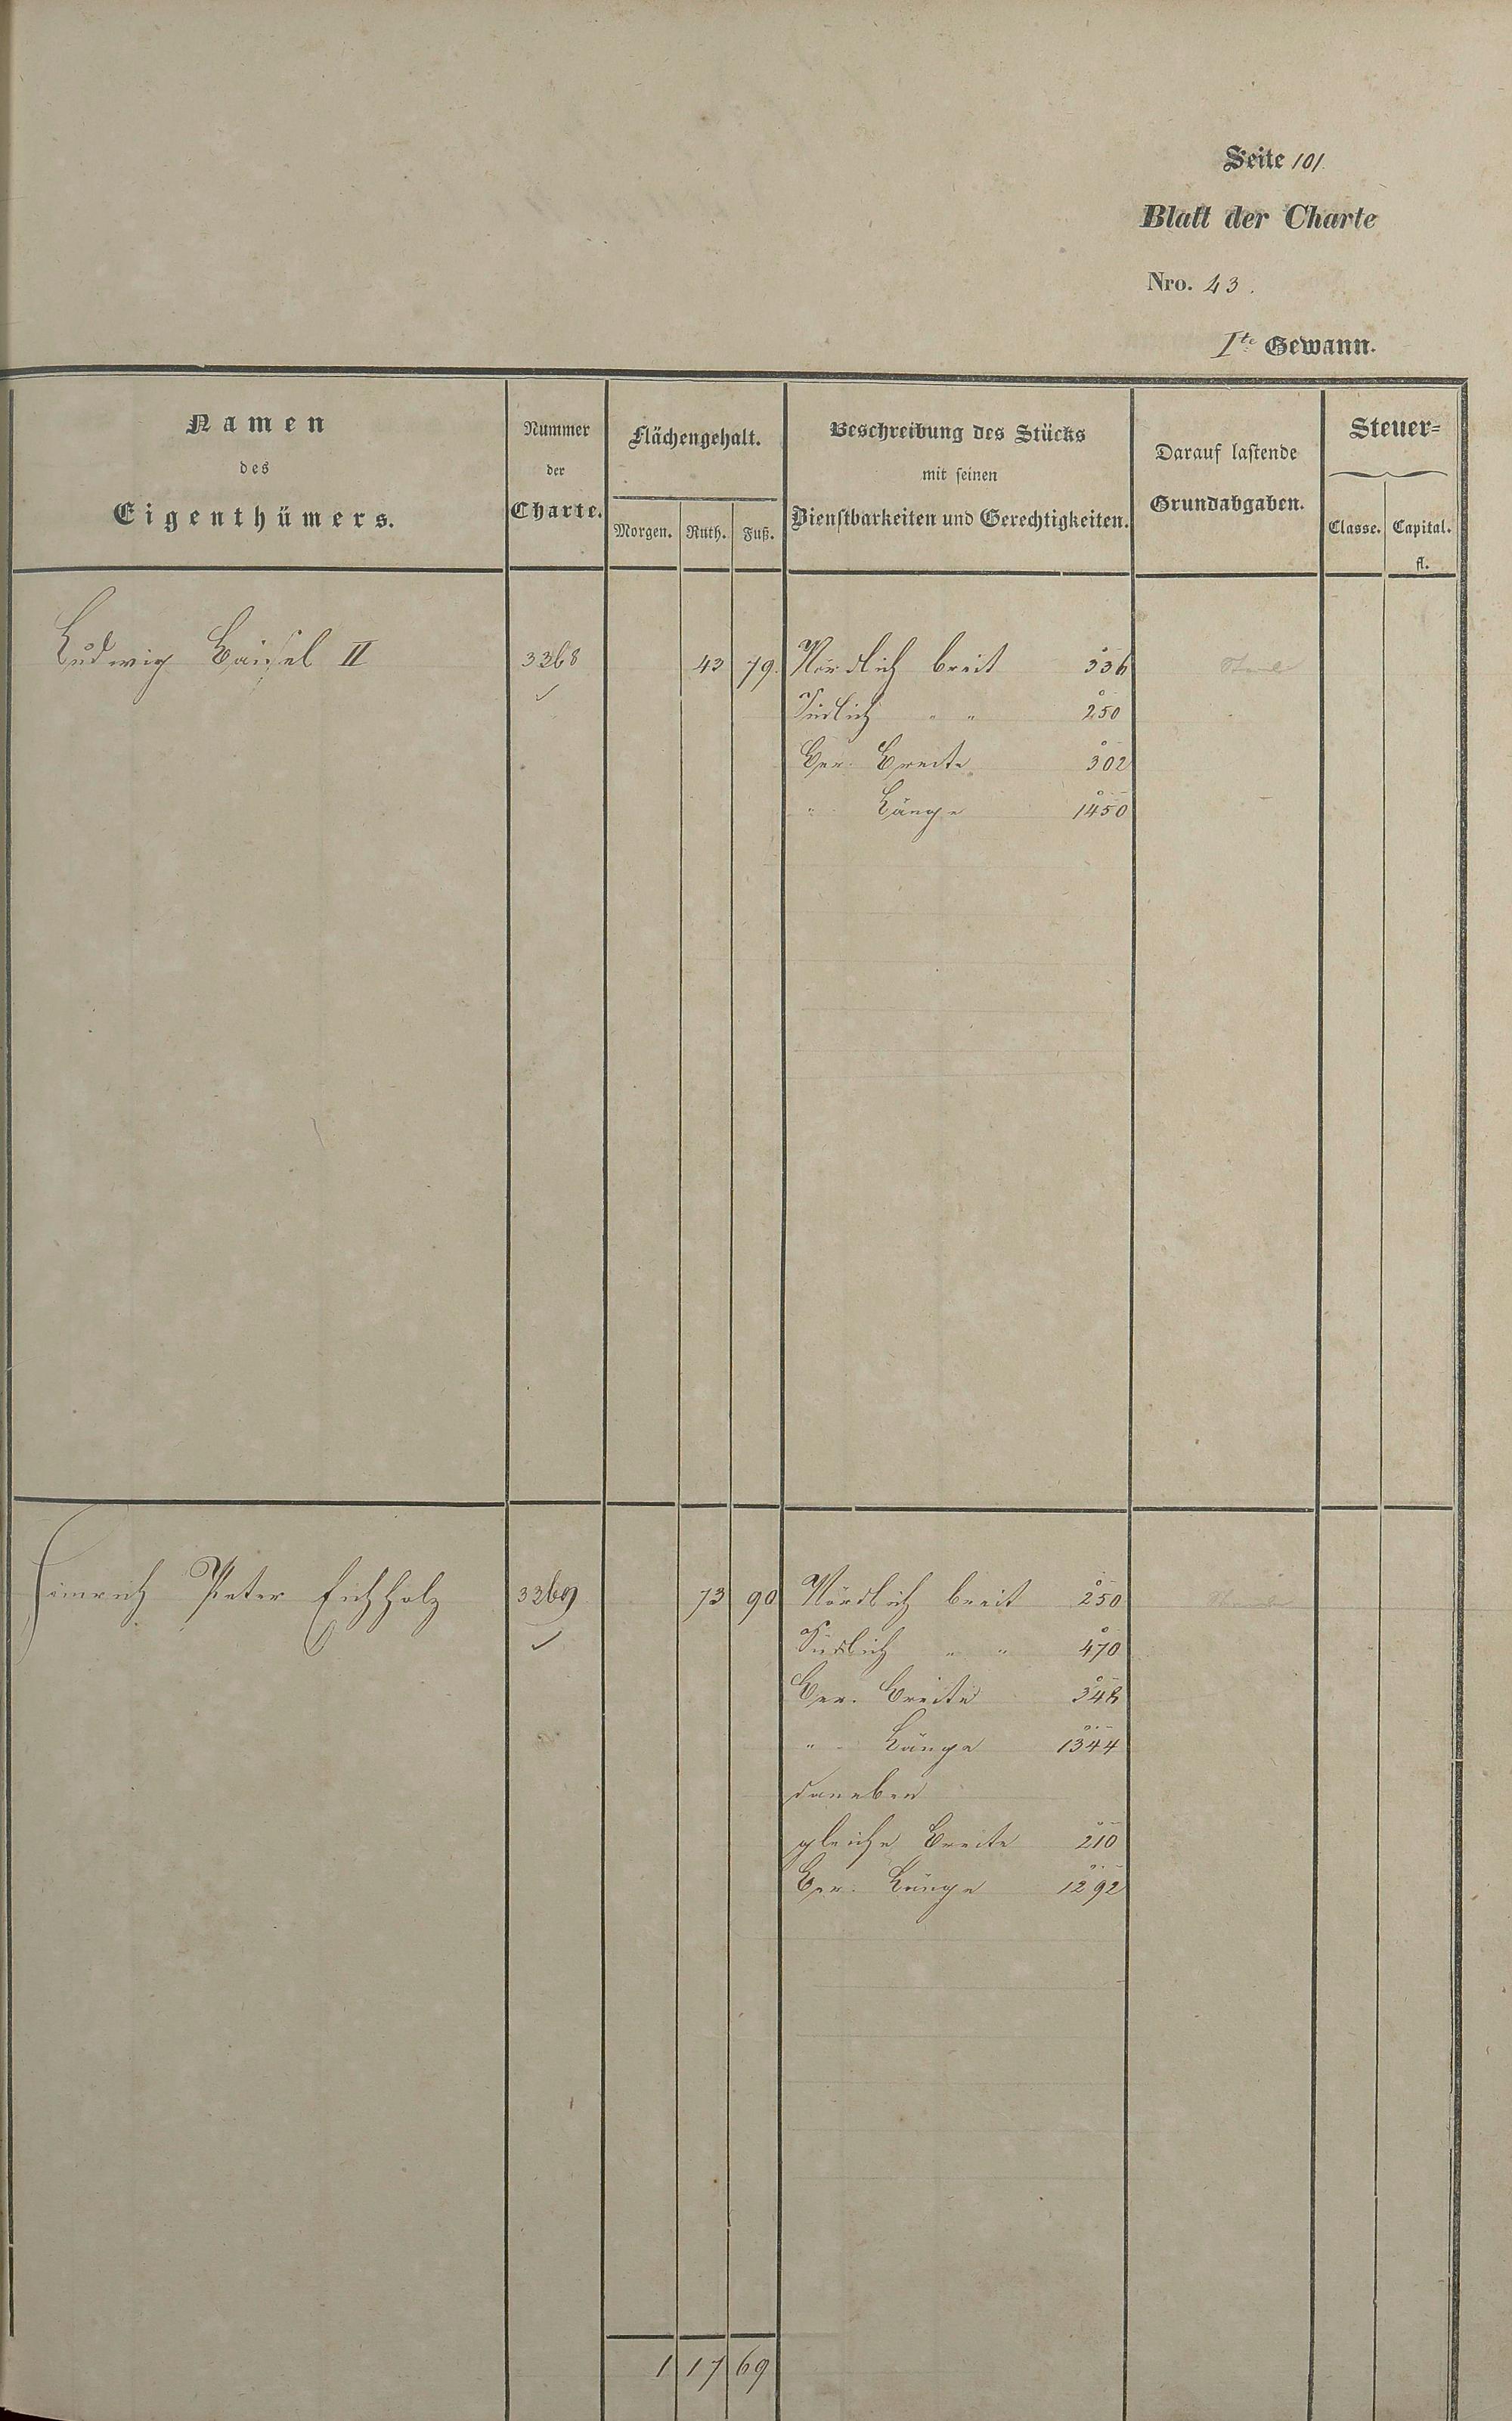 Seite 101
Blatt der Charte
Nro. 43.
Ite Gewann.
Namen
des
Eigenthümers.
Nummer
der
Charte.
Flächengehalt.
Morgen. Ruth. Fuß.
Beschreibung des Stücks
mit seinen
Dienstbarkeiten und Gerechtigkeiten.
Darauf lastende
Grundabgaben.
Steuer=
Classe. Capital.
fl.
Ludwig II 3368 43 79. Nördlich breit 336
Südlich " " 250
Ber. Breite 302
" Länge 1450
Heinrich Peter Eichholz 3369 73 90 Nördlich breit 250
Südlich " " 470
Ber. Breite 348
" Länge 1344
daneben
gleiche Breite 210
Ber. Länge 1292
1 17 69